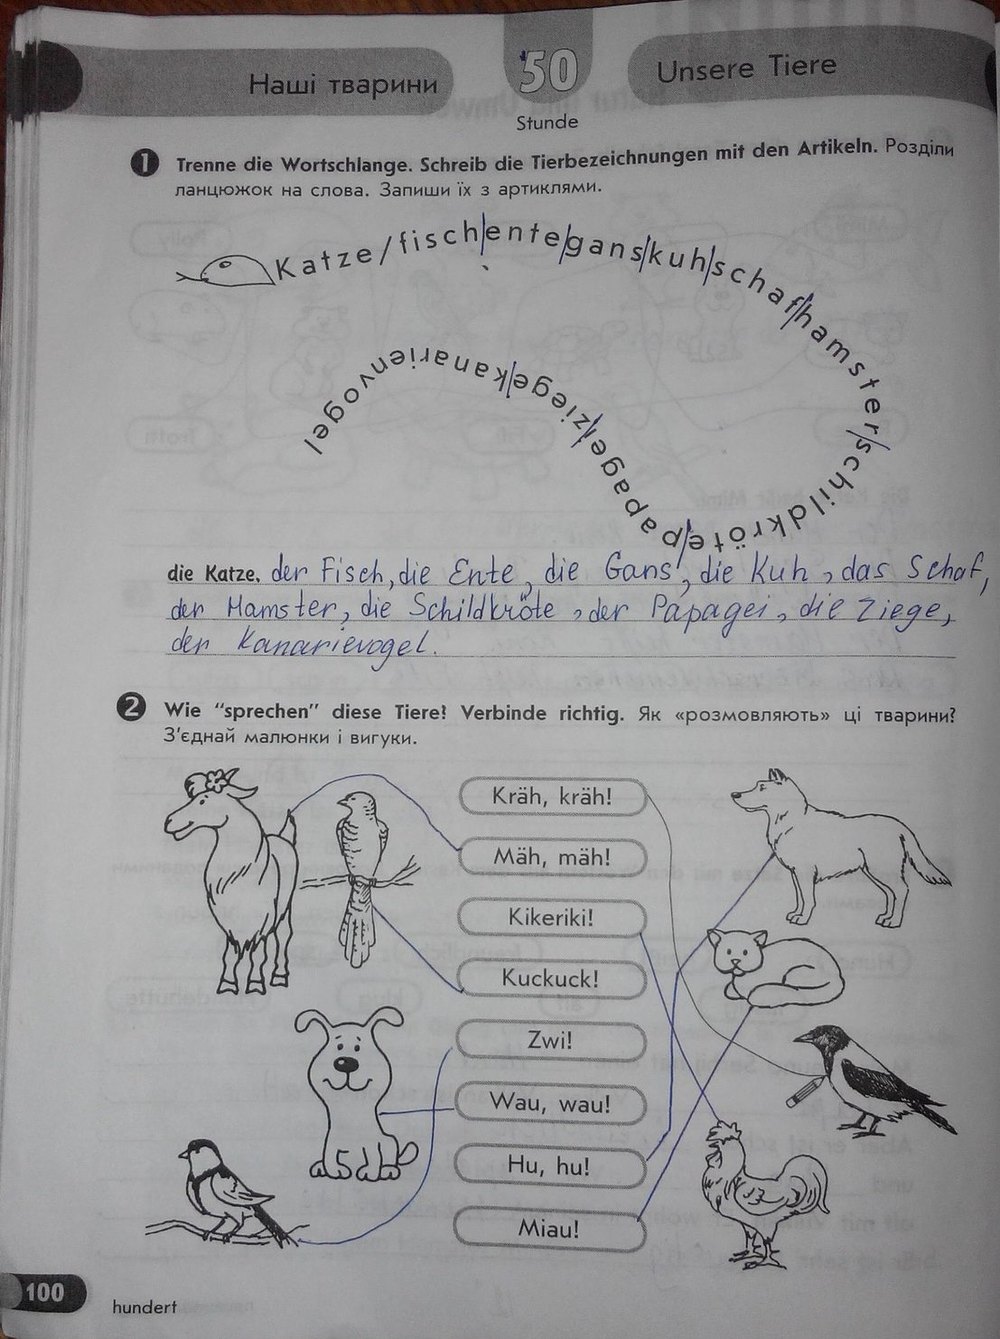 Наші тварини 50 Unsere Tiere
Stunde
1 Trenne die Wortschlange. Schreib die Tierbezeichnungen mit den Artikeln. Розділи
ланцюжок на слова. Запиши їх з артиклями.
Katze/fisch/ente/gans/kuh/schaf/hamster/schildkröte/papagei/ziege/kanarienvogel
die Katze, der Fisch, die Ente, die Gans, die Kuh, das Schaf,
der Hamster, die Schildkröte, der Papagei, die Ziege,
der Kanarievogel.
2 Wie "sprechen" diese Tiere? Verbinde richtig. Як «розмовляють» ці тварини?
З'єднай малюнки і вигуки.
Kräh, kräh!
Mäh, mäh!
Kikeriki!
Kuckuck!
Zwi!
Wau, wau!
Hu, hu!
Miau!
100
hundert